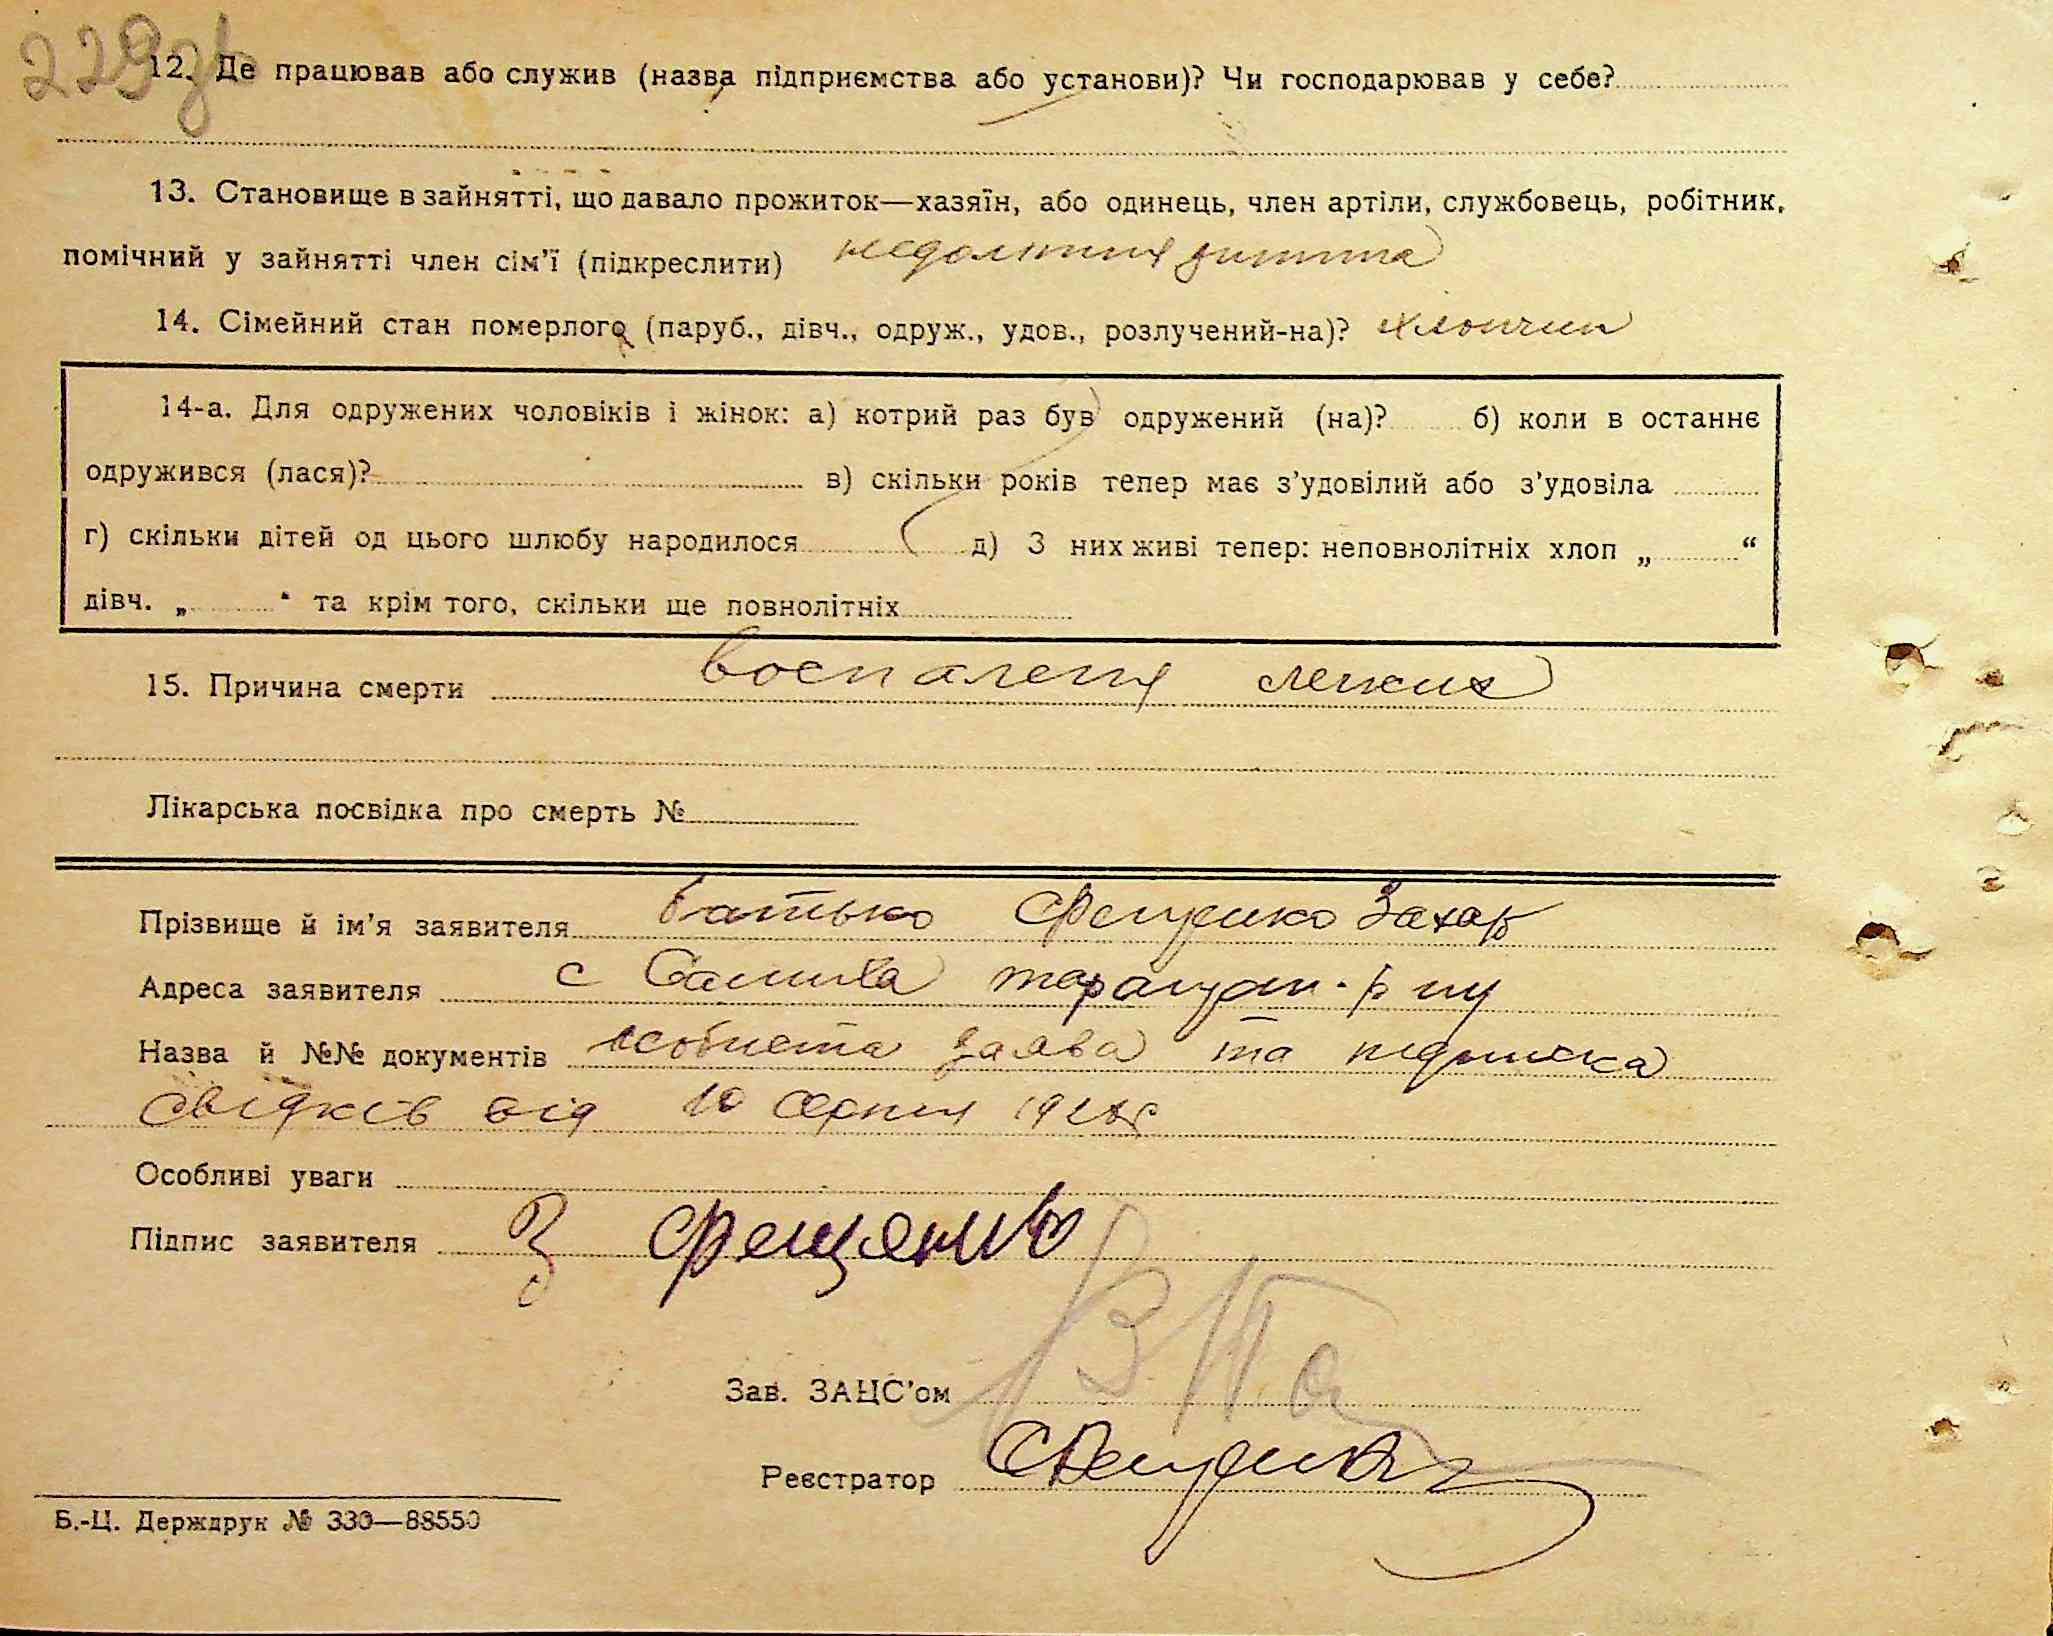 229зв
12. Де працював або служив (назва підприємства або установи)? Чи господарював у себе?
13. Становище в зайнятті, що давало прожиток—хазяїн, або одинець, член артіли, службовець, робітник,
помічний у зайнятті член сім'ї (підкреслити) недолітня дитина
14. Сімейний стан померлого (паруб., дівч., одруж., удов., розлучений-на)? хлопчик
14-а. Для одружених чоловіків і жінок: а) котрий раз був одружений (на)? б) коли в останнє
одружився (лася)? в) скільки років тепер має з'удовілий або з'удовіла
г) скільки дітей од цього шлюбу народилося д) З них живі тепер: неповнолітніх хлоп „ “
дівч. „ “ та крім того, скільки ще повнолітніх
15. Причина смерти воспаленя легких
Лікарська посвідка про смерть №
Прізвище й ім'я заявителя батько Фещенко Захар
Адреса заявителя с
Назва й №№ документів особиста заява та підписка
свідків від 10 серпня 1928р
Особливі уваги
Підпис заявителя З Фещенко
Зав. ЗАЦС'ом
Реєстратор
Б.-Ц. Держдрук № 330—88550